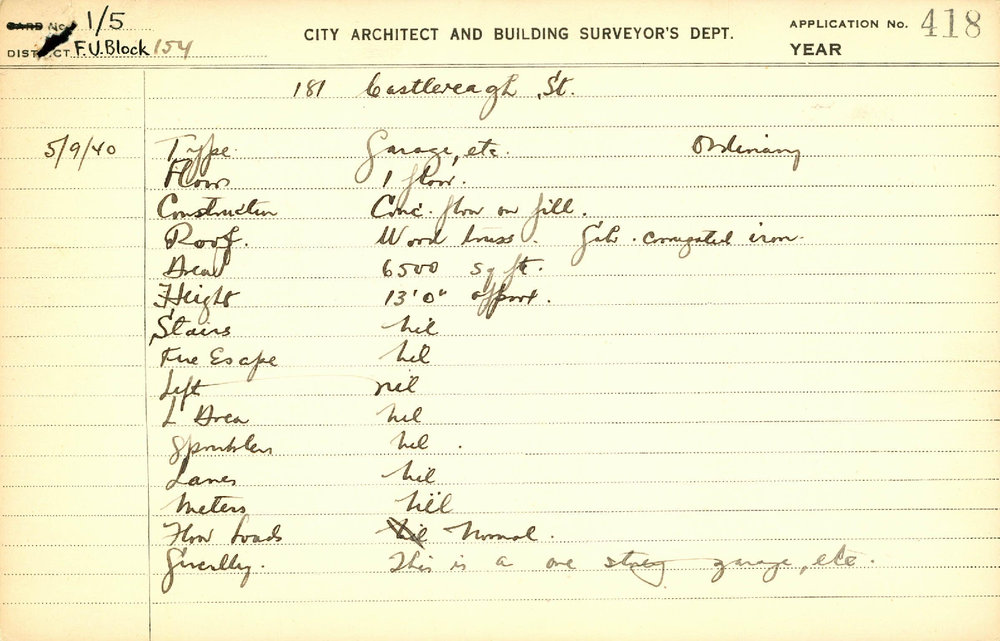 CARD No. 1/5
CITY ARCHITECT AND BUILDING SURVEYOR'S DEPT.
APPLICATION No. 418
DISTRICT F.U.Block 154
YEAR
181 Castlereagh St.
5/9/40 Type Garage, etc. Ordinary
Floors 1 floor.
Construction Conc. floor on fill.
Roof. Wood truss. Galv. corrugated iron.
Area 6500 sq ft.
Height 13'0" approx.
Stairs nil
Fire Escape nil
Lift nil
L Area nil
Sprinklers nil.
Lanes nil
Meters nil
Floor Loads nil Normal.
Generally. This is a one storey garage, etc.